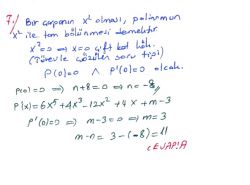 7./ Bir çarpanın x² olması, polinomun
x² ile tam bölünmesi demektir
x²=0 ⇒ x=0 çift kat kök.
(Türevle çözülen soru tipi)
P(0)=0 ∧ P'(0)=0 olcak.
P(0)=0 ⇒ n+8=0 ⇒ n=-8//
P'(x)=6x⁵+4x³-12x²+4x+m-3
P'(0)=0 ⇒ m-3=0 ⇒ m=3
m-n= 3-(-8)=11
CEVAP:A